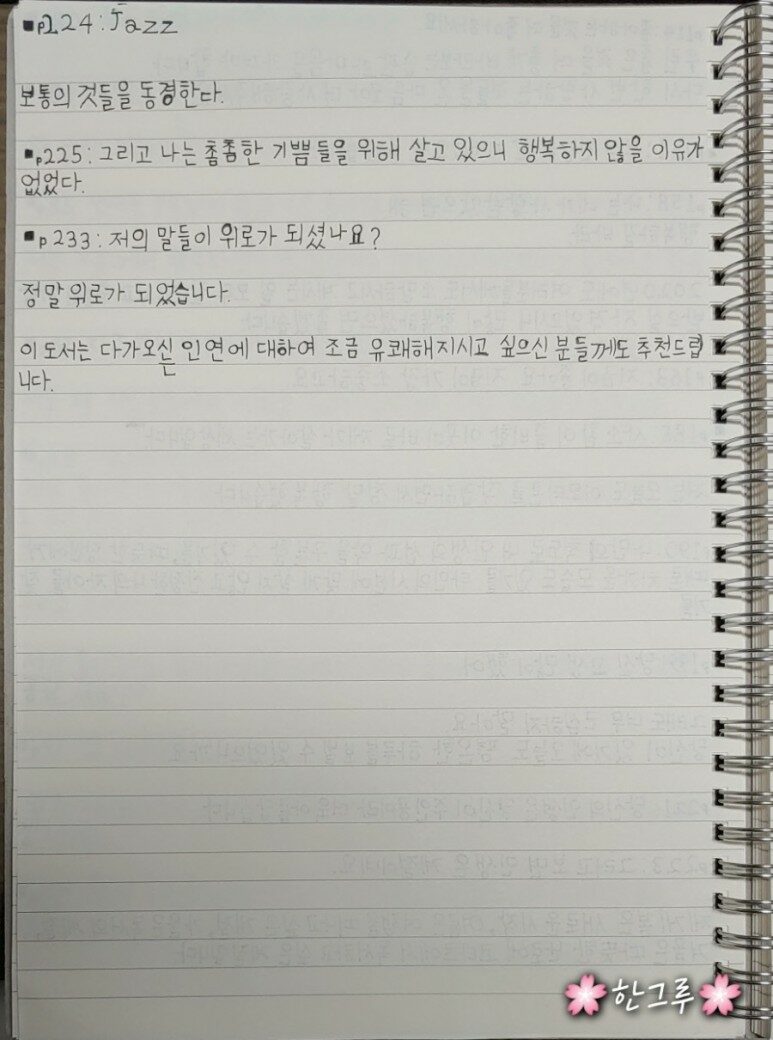 ■p224: Jazz
보통의 것들을 동경한다.
■p225: 그리고 나는 촘촘한 기쁨들을 위해 살고 있으니 행복하지 않을 이유가
없었다.
■p233: 저의 말들이 위로가 되셨나요?
정말 위로가 되었습니다.
이 도서는 다가오는 인연에 대하여 조금 유쾌해지시고 싶으신 분들께도 추천드립
니다.
🌸한그루🌸